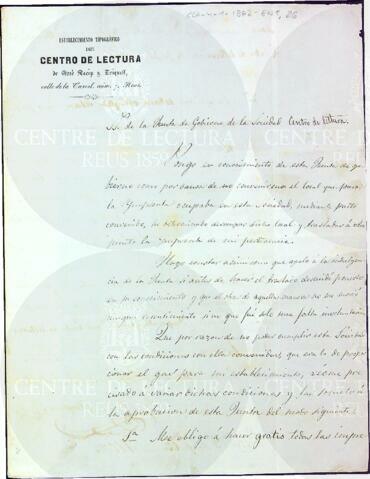 ESTABLECIMIENTO TIPOGRÁFICO
DEL
CENTRO DE LECTURA
de José Recip y Triquell,
calle de la Canal, núm. 7, Reus.
Sr. de la Junta de Gobierno de la Sociedad Centro de Lectura.
Pongo en conocimiento de esta Junta de go-
bierno como por causa de no convenirme el local que para
la Imprenta ocupaba en esta Sociedad, mediante pacto
convenido, he desocupar dicho local y trasladar á otro
punto la Imprenta de mi pertenencia.
Hago constar asimismo que apelo á la indulgen-
cia de la Junta si antes de hacer el traslado no
en su conocimiento y que el obrar de aquella manera no
ningun resentimiento si no que fué solo una falta involuntaria
Que por razon de no poder cumplir esta Sociedad
con las condiciones con ella convenidas, que era la de propor-
cionar el gas para mi establecimiento, véome pre-
cisado á variar dichas condiciones y las someto á
la aprobacion de esta Junta del modo siguiente.
1ª Me obligo á hacer gratis todas las impre-
CENTRE DE LECTURA
REUS 1859
CENTRE DE LECTURA
REUS 1859